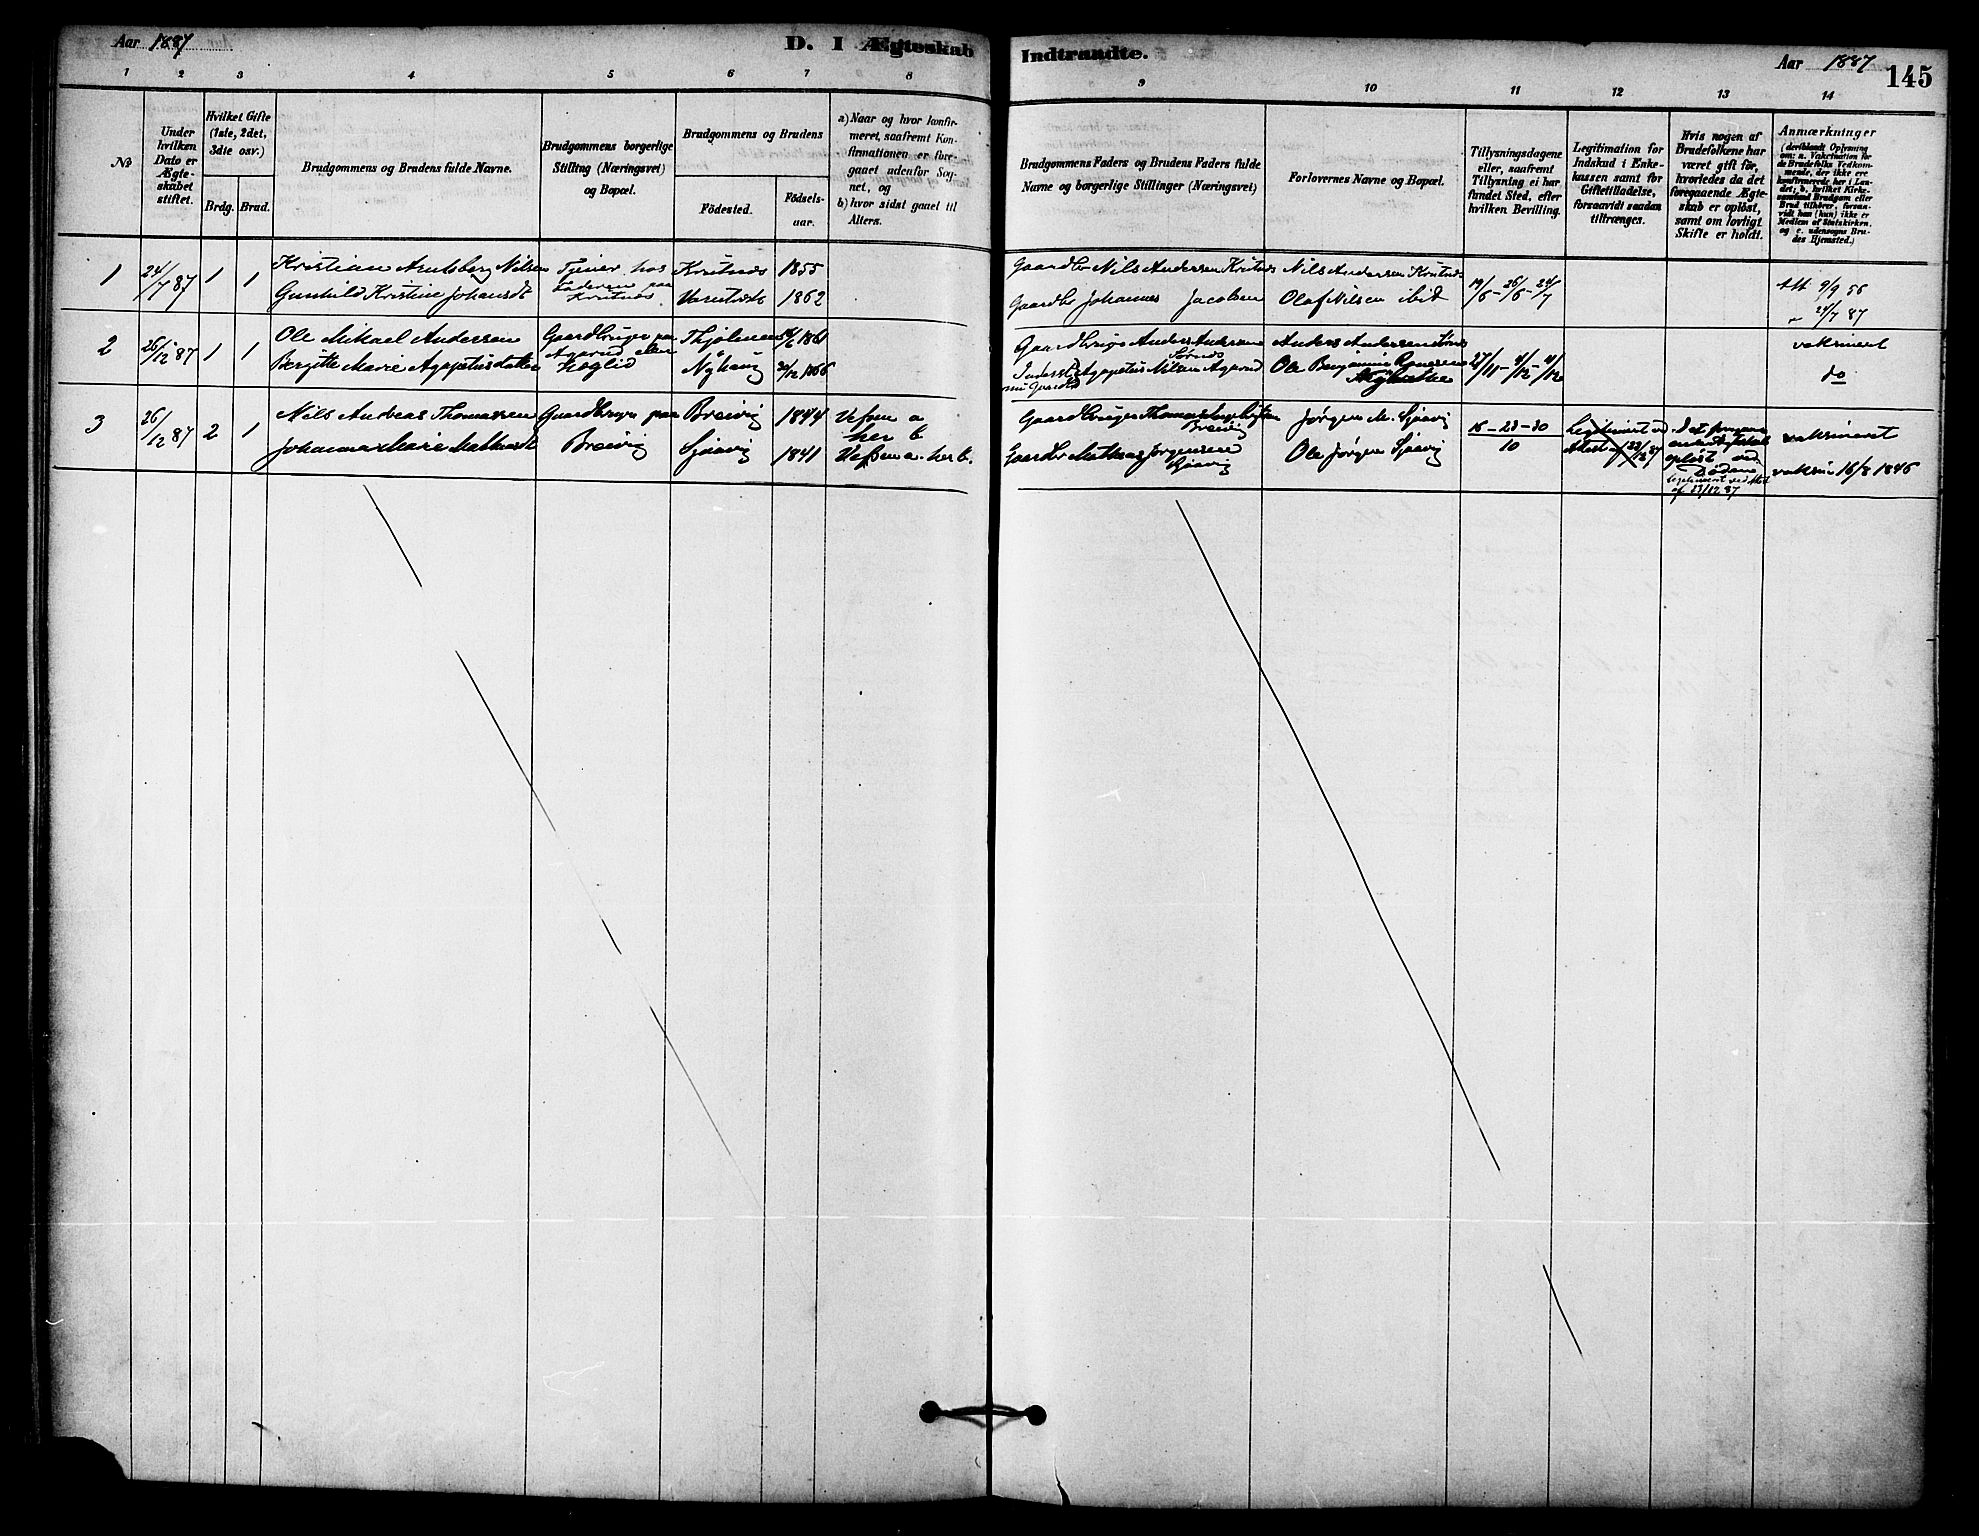 Aar 1887
D. I Ægteskab
Indtraadte.
Aar 1887
145
1 2 3 4 5 6 7 8
9 10 11 12 13 14
No
Under hvilken Dato er Ægteskabet stiftet.
Hvilket Gifte (1ste, 2det, 3die osv.)
Brdg. Brud.
Brudgommens og Brudens fulde Navne.
Brudgommens borgerlige Stilling (Næringsvei) og Bopæl.
Brudgommens og Brudens
Födested.
Födsels-aar.
a) Naar og hvor konfirmeret, saafremt Konfirmationen er foregaaet udenfor Sognet, og
b) hvor sidst gaaet til Alters.
Brudgommens Faders og Brudens Faders fulde Navne og borgerlige Stillinger (Næringsvei)
Forlovernes Navne og Bopæl.
Tillysningsdagene eller, saafremt Tillysning ei har fundet Sted, efter hvilken Bevilling.
Legitimation for Indskud i Enkekassen samt for Giftetilladelse, forsaavidt saadan tiltrænges.
Hvis nogen af Brudefolkene har været gift før, hvorledes da det foregaaende Ægteskab er opløst, samt om lovligt Skifte er holdt.
Anmærkninger
(deriblandt Oplysning om: a. Vakcination for de Brudefolks Vedkommende, der ikke ere konfirmerede her i Landet; b. hvilket Kirkesamfund Brudgom eller Brud tilhører, forsaavidt han (hun) ikke er Medlem af Statskirken, og c. udensogns Brudes Hjemsted.)
1 24/7 87 1 1
Kristian Nilsen
Gunhild Kristine Johansdt
Tjener hos Faderen paa
1855
1862
Gaardbr Nils Andersen
Gaardbr Johannes Jacobsen
Nils Andersen
Olaf Nilsen ibid
19/6 - 26/6 - 24/7
Att 9/9 56
24/7 87
2 26/12 87 1 1
Ole Mikael Andersen
Bergitte Marie Agapetusdatter
Gaardbruger paa
1861
1866
Gaardbruger Anders Andersen
Agapetus Nilsen
Anders Andersen
Ole Benjamin
27/11 - 4/12 - 11/12
vaksineret
do
3 26/12 87 2 1
Nils Andreas Thomassen
Johanna Marie
Gaardbruger paa
Breivig
Breivig
1844
1841
Vefsen a
her b
Vefsen a. her b.
Gaardbruger Thomas
Breivig
Gaardbr Mathias Jørgensen
Jørgen M.
Ole Jørgen
16 - 23 - 30
10
Legitimeret ved
Attest af 23/12 87
Det
opløst ved
Døden
legitimeret ved Att
af 23/12 87
vaksineret
vaksin 16/8 1846